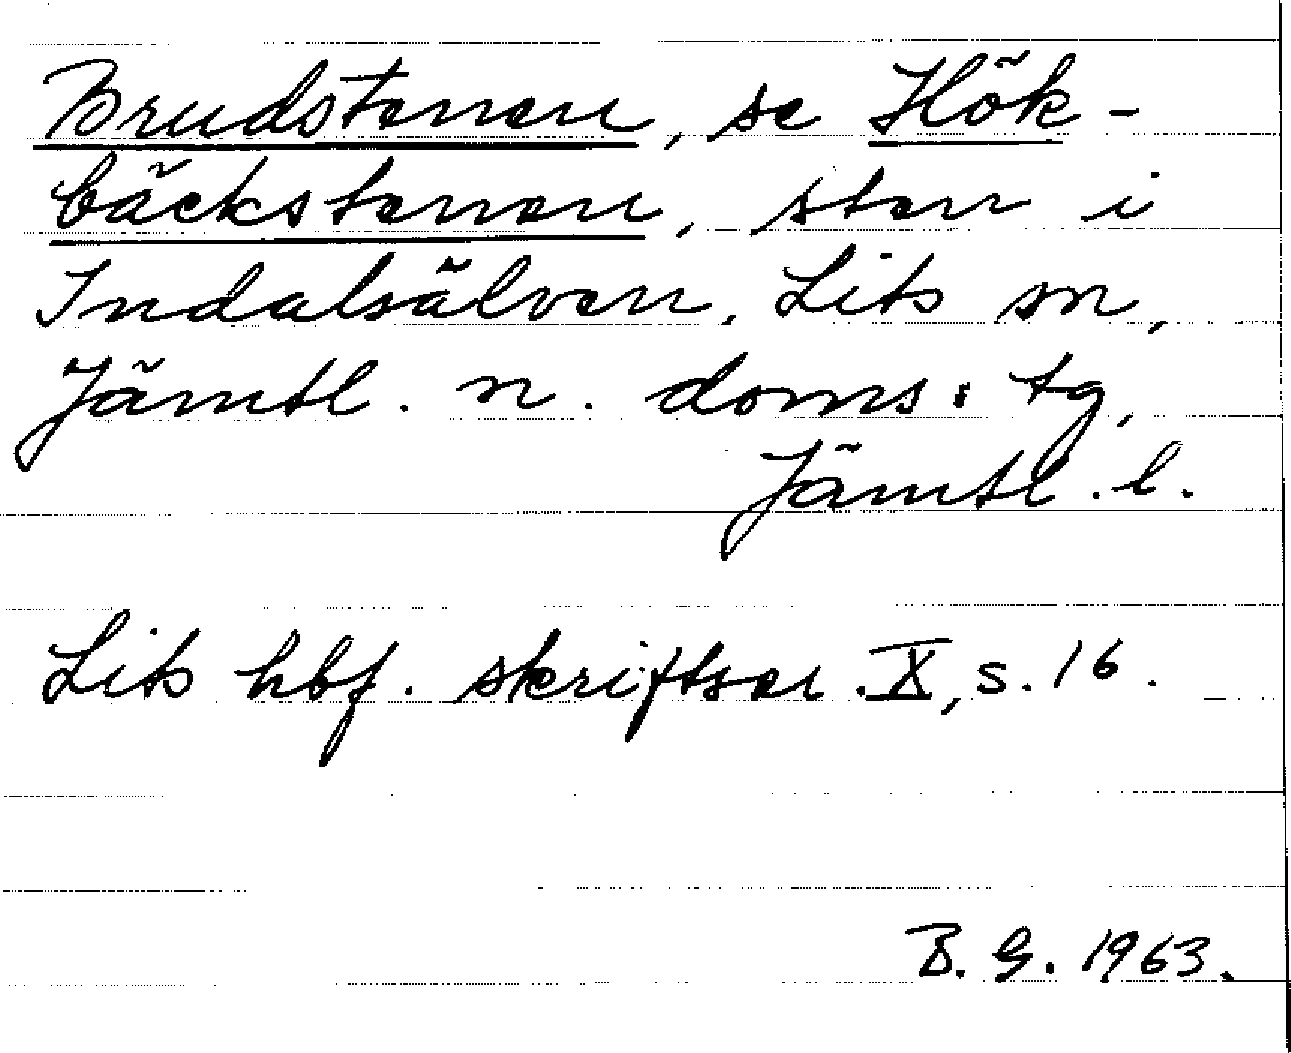 Brudstenen, se Hök-
bäckstenen, sten i
Indalsälven, Lits sn,
Jämtl. n. doms: tg,
Jämtl. l.
Lits hbf. skriftser. X, s. 16.
B. G. 1963.